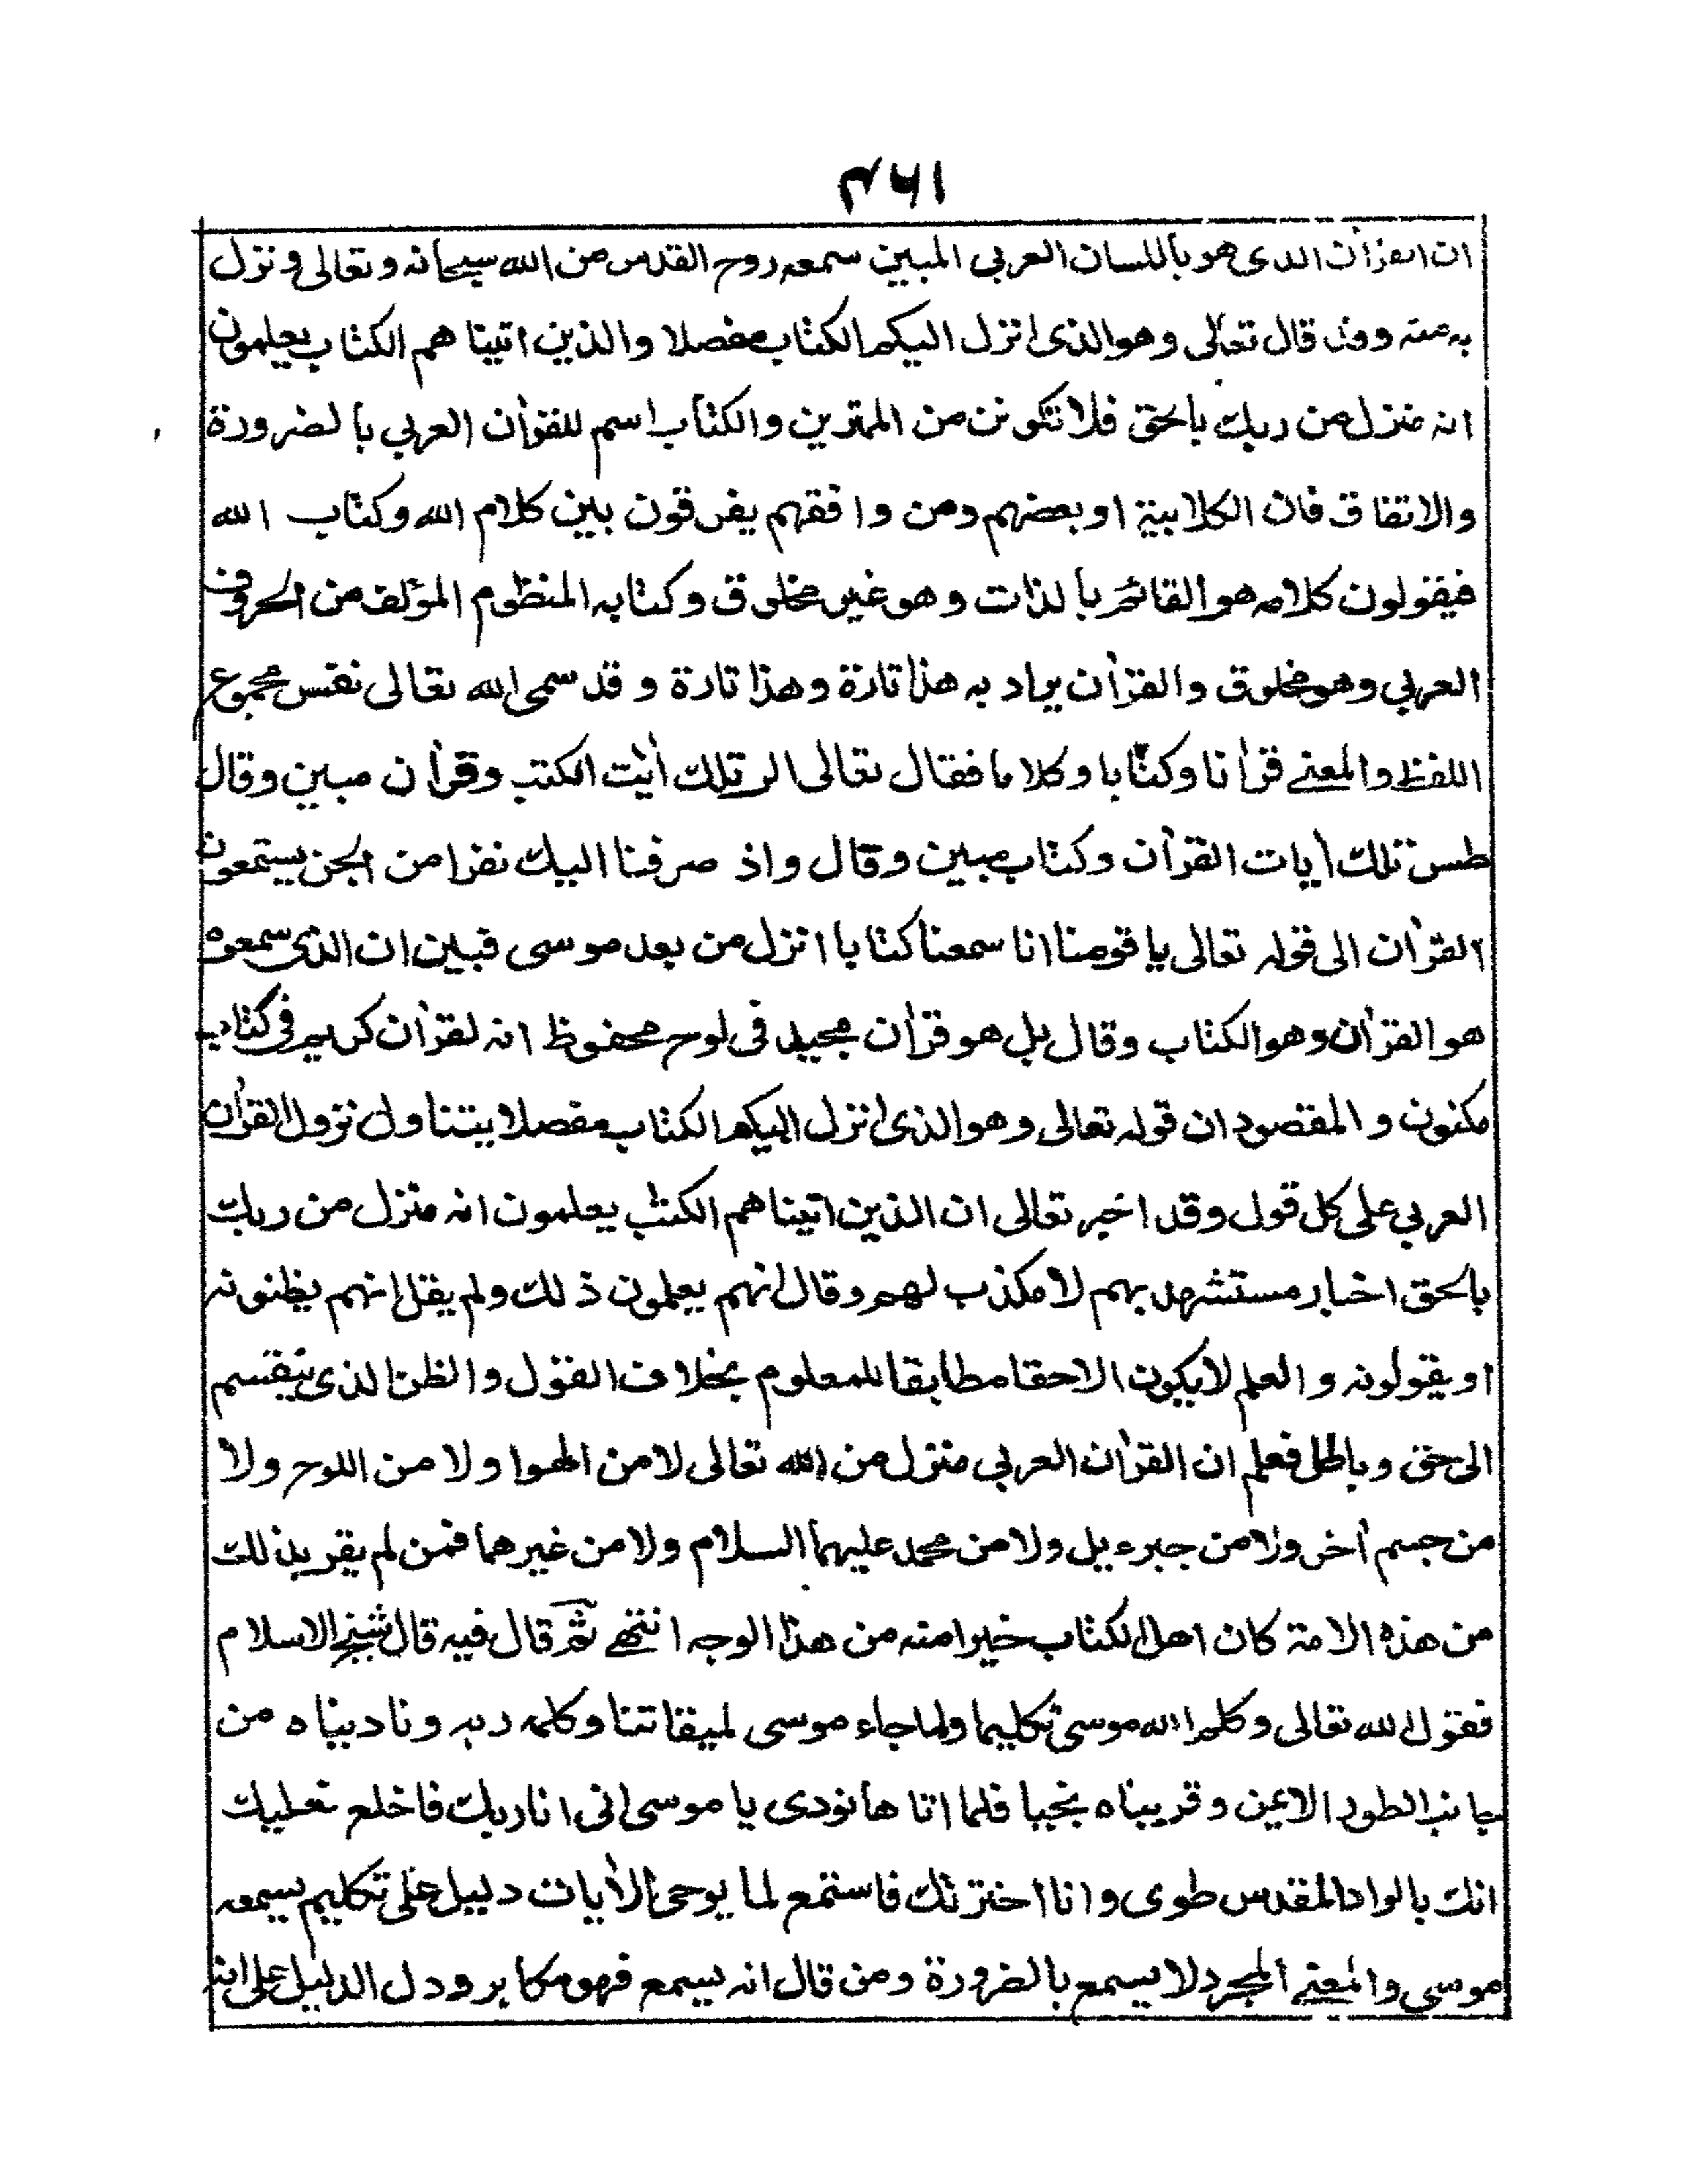 ١٦٤
ان القرأن الذى هو باللسان العربي المبين سمعه روح القدس من الله سبحانه وتعالى ونزل
به منه وقد قال تعالى وهو الذى انزل اليكم الكتاب مفصلا والذين اتينا هم الكتاب يعلمون
انه منزل من ربك بالحق فلا تكونن من الممترين والكتاب اسم للقرأن العربي بالضرورة
والاتفاق فان الكلابية او بعضهم ومن وافقهم يفرقون بين كلام الله وكتاب الله
فيقولون كلامه هو القائم بالذات وهو غير مخلوق وكتابه المنظوم المؤلف من الحروف
العربي وهو مخلوق والقرأن يراد به هذا تارة وهذا تارة وقد سمى الله تعالى نفس مجموع
اللفظ والمعنے قرأنا وكتابا وكلاما فقال تعالى الر تلك أيٰت الكتب وقرأن مبين وقال
طسٓ تلك أيات القرأن وكتاب مبين وقال واذ صرفنا اليك نفرا من الجن يستمعون
القرأن الى قوله تعالى يا قومنا انا سمعنا كتابا انزل من بعد موسى فبين ان الذى سمعوه
هو القرأن وهو الكتاب وقال بل هو قرأن مجيد فى لوح محفوظ انه لقرأن كريم فى كتاب
مكنون والمقصود ان قوله تعالى وهو الذى انزل اليكم الكتاب مفصلا يتناول نزول القرأن
العربي على كل قول وقد اخبر تعالى ان الذين اتينا هم الكتٰب يعلمون انه منزل من ربك
بالحق اخبار مستشهد بهم لا مكذب لهم وقال انهم يعلمون ذلك ولم يقل انهم يظنونه
او يقولونه والعلم لا يكون الا حقا مطابقا للمعلوم بخلاف القول والظن الذى ينقسم
الى حق وباطل فعلم ان القرأن العربي منزل من الله تعالى لا من الهوا ولا من اللوح ولا
من جسم أخر ولا من جبرءيل ولا من محمد عليهما السلام ولا من غيرهما فمن لم يقر بذلك
من هذه الامة كان اهل الكتاب خيرا منه من هذا الوجه انتهے ثم قال فيه قال شيخ الاسلام
فقول الله تعالى وكلم الله موسى تكليما ولما جاء موسى لميقاتنا وكلمه ربه وناديناه من
جانب الطور الايمن وقربناه نجيا فلما اتا ها نودى يا موسى انى انا ربك فاخلع نعليك
انك بالواد المقدس طوى وانا اخترتك فاستمع لما يوحى الأيات دليل على تكليم يسمعه
موسى والمعنے المجرد لا يسمع بالضرورة ومن قال انه يسمع فهو مكابر ودل الدليل على انه